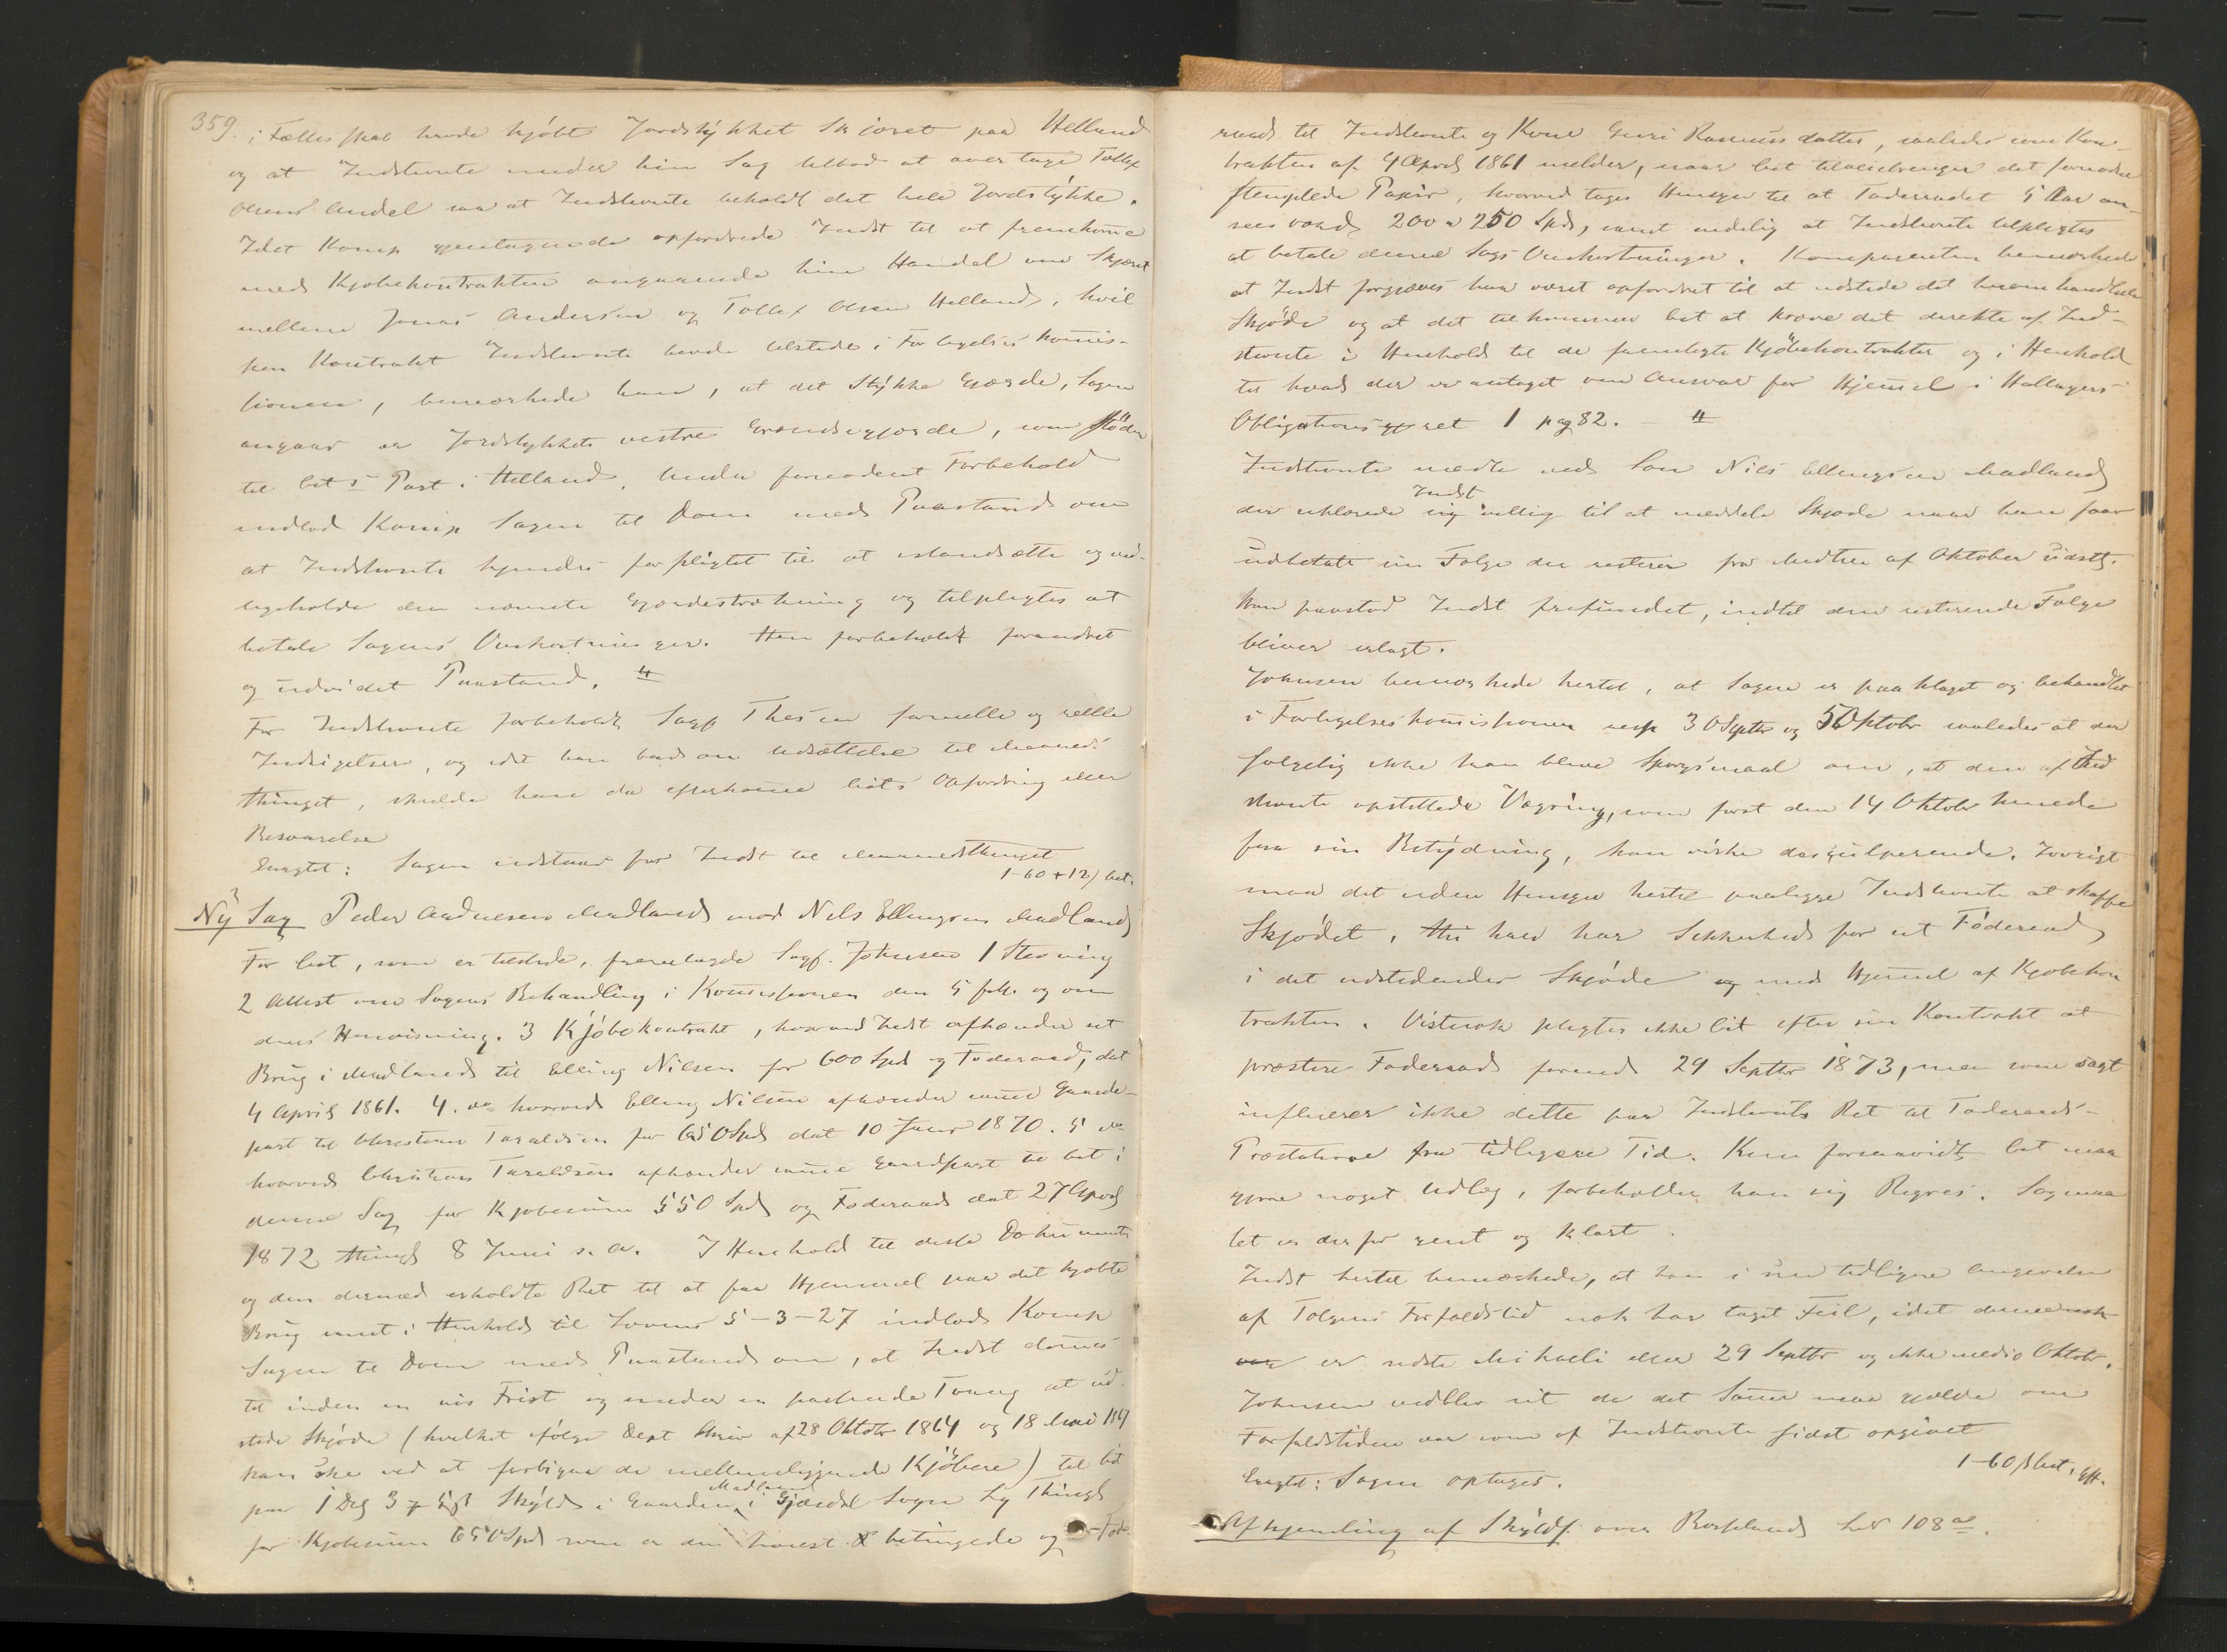 359.
i Fællesskab havde kjöbt Jordstykket Skjæret paa Helland
og at Indstevnte under hin Sag tilbød at overtage Tollef
Olsens Andel saa at Indstevnte beholdt det hele Jordstykke.
Idet Komp gjentagende opfordrede Indst til at fremkomme
med Kjøbekontrakten angaaende hin Handel om Skjæret
mellem Jonas Andersen og Tollef Olsen Helland, hvil
ken Kontrakt Indstevnte havde tilstede i Forligelseskommis-
sionen, bemærkede han, at det Stykke Gjærde, Sagen
angaar er Jordstykkets vestre Grændsegjærde, som stöder
til Cit's Part i Helland. Under fornødent Forbehold
indlod Komp Sagen til Dom med Paastand om
at Indstevnte kjendes forpligtet til at istandsætte og ved-
ligeholde den nævnte Gjærdestrækning og tilpligtes at
betale Sagens Omkostninger. Han forbeholdt forandret
og udvidet Paastand. #
For Indstevnte forbeholdt Sagf Thesen formelle og reelle
Indsigelser, og idet han bad om Udsættelse til Maaneds
thinget, skulde han da efterkomme Cit's Opfordring eller
Besvarelse
Eragtet: Sagen udstaar for Indst til Maanedsthinget
1-60+12) bet.
Ny Sag Peder Aadnesen Madland mod Nils Ellingsen Madland
For Cit, som er tilstede, fremlagde Sagf. Johnsen 1 Stevning
2 Attest om Sagens Behandling i Kommissionen den 5 f.M. og om
dens Henvisning. 3 Kjöbekontrakt, hvorved Indst afhænder sit
Brug i Madland til Elling Nilsen for 600 Spd og Føderaad, dat
4 April 1861. 4. do hvorved Elling Nilsen afhænder samme Gaards-
part til Christian Taraldsen for 650 Spd dat 10 Janr 1870. 5 do
hvorved Christian Taraldsen afhænder samme Gaardpart til Cit i
denne Sag for Kjøbesum 550 Spd og Føderaad dat 27 April
1872 thingl 8 Juni s. A. I Henhold til disse Dokumenter
og den dermed erholdte Ret til at faa Hjemmel paa det kjøbte
Brug samt i Henhold til Lovens 5-3-27 indlod Komp
Sagen til Dom med Paastand om, at Indst dømmes
til inden en vis Frist og under en passende Tvang at ud-
stede Skjøde (hvilket ifölge Dept Skriv af 28 Oktobr 1864 og 18 Mai 1867
kan ske ved at forbigaa de mellemliggende Kjöbere) til Cit
paa 1 Dlr 3 Skyld i Gaarden Madland i Gjæsdal Sogn Ly Thingl
for Kjøbesum 650 Spd som er den höiest betingede og Føde-
raad til Indstevnte og Kone Guri Rasmusdatter, saaledes som Kon-
trakten af 4 April 1861 melder, naar Cit tilveiebringer det fornødne
stemplede Papir, hvorved tages Hensyn til at Føderaadet 5 Aar an-
sees værd 200 a 250 Spd, samt endelig at Indstevnte tilpligtes
at betale denne Sags Omkostninger. Komparenten bemærkede
at Indst forgjæves har været opfordret til at udstede det heromhandlede
Skjöde og at det tilkommer Cit at kræve det direkte af Ind-
stevnte i Henhold til de fremlagte Kjöbekontrakter og i Henhold
til hvad der er antaget om Ansvar for Hjemmel i Hallagers
Obligationsret 1 pag 82. — #
Indstevnte mødte ved Søn Nils Ellingsen Madland
der erklærede Indst sig villig til at meddele Skjøde naar han faar
udbetalt sin Følge der resterer fra Midten af Oktober sidstl.
Han paastod Indst frifundet, indtil den resterende Følge
bliver erlagt.
Johnsen bemærkede hertil, at Sagen er paaklaget og behandlet
i Forligelseskommissionen resp 30 Septbr og 5 Oktobr saaledes at der
følgelig ikke kan blive Spørgsmaal om, at den af Ind
stevnte opstillede Vægring, som først den 14 Oktobr kunde
faa sin Betydning, kan virke diskulperende. Iøvrigt
maa det uden Hensyn hertil paaligge Indstevnte at skaffe
Skjödet, thi han har Sikkerhed for sit Föderaad
i det udstedendes Skjøde og med Hjemmel af Kjøbekon
trakten. Vistnok pligter ikke Cit efter sin Kontrakt at
præstere Føderaad førend 29 Septbr 1873, men som sagt
influerer ikke dette paa Indstevntes Ret til Føderaads-
Præstationer fra tidligere Tid. Kun forsaavidt Cit maa
gjøre noget Udlæg, forbeholder han sig Regres. Søgsmaa
let er derfor rent og klart.
Indst hertil bemærkede, at han i sin tidligere Angivelse
af Følgens Forfaldstid nok har taget Feil, idet denne nok
var er sidste Mikaeli eller 29 Septbr og ikke medio Oktobr.
Johnsen vedblev sit da det Samme maa gjælde om
Forfaldstiden var som af Indstevnte sidst opgivet
1-60 ß bet. Eft.
Eragtet: Sagen optages.
Afhjemling af Skyldf. over Bosseland No 108 a.